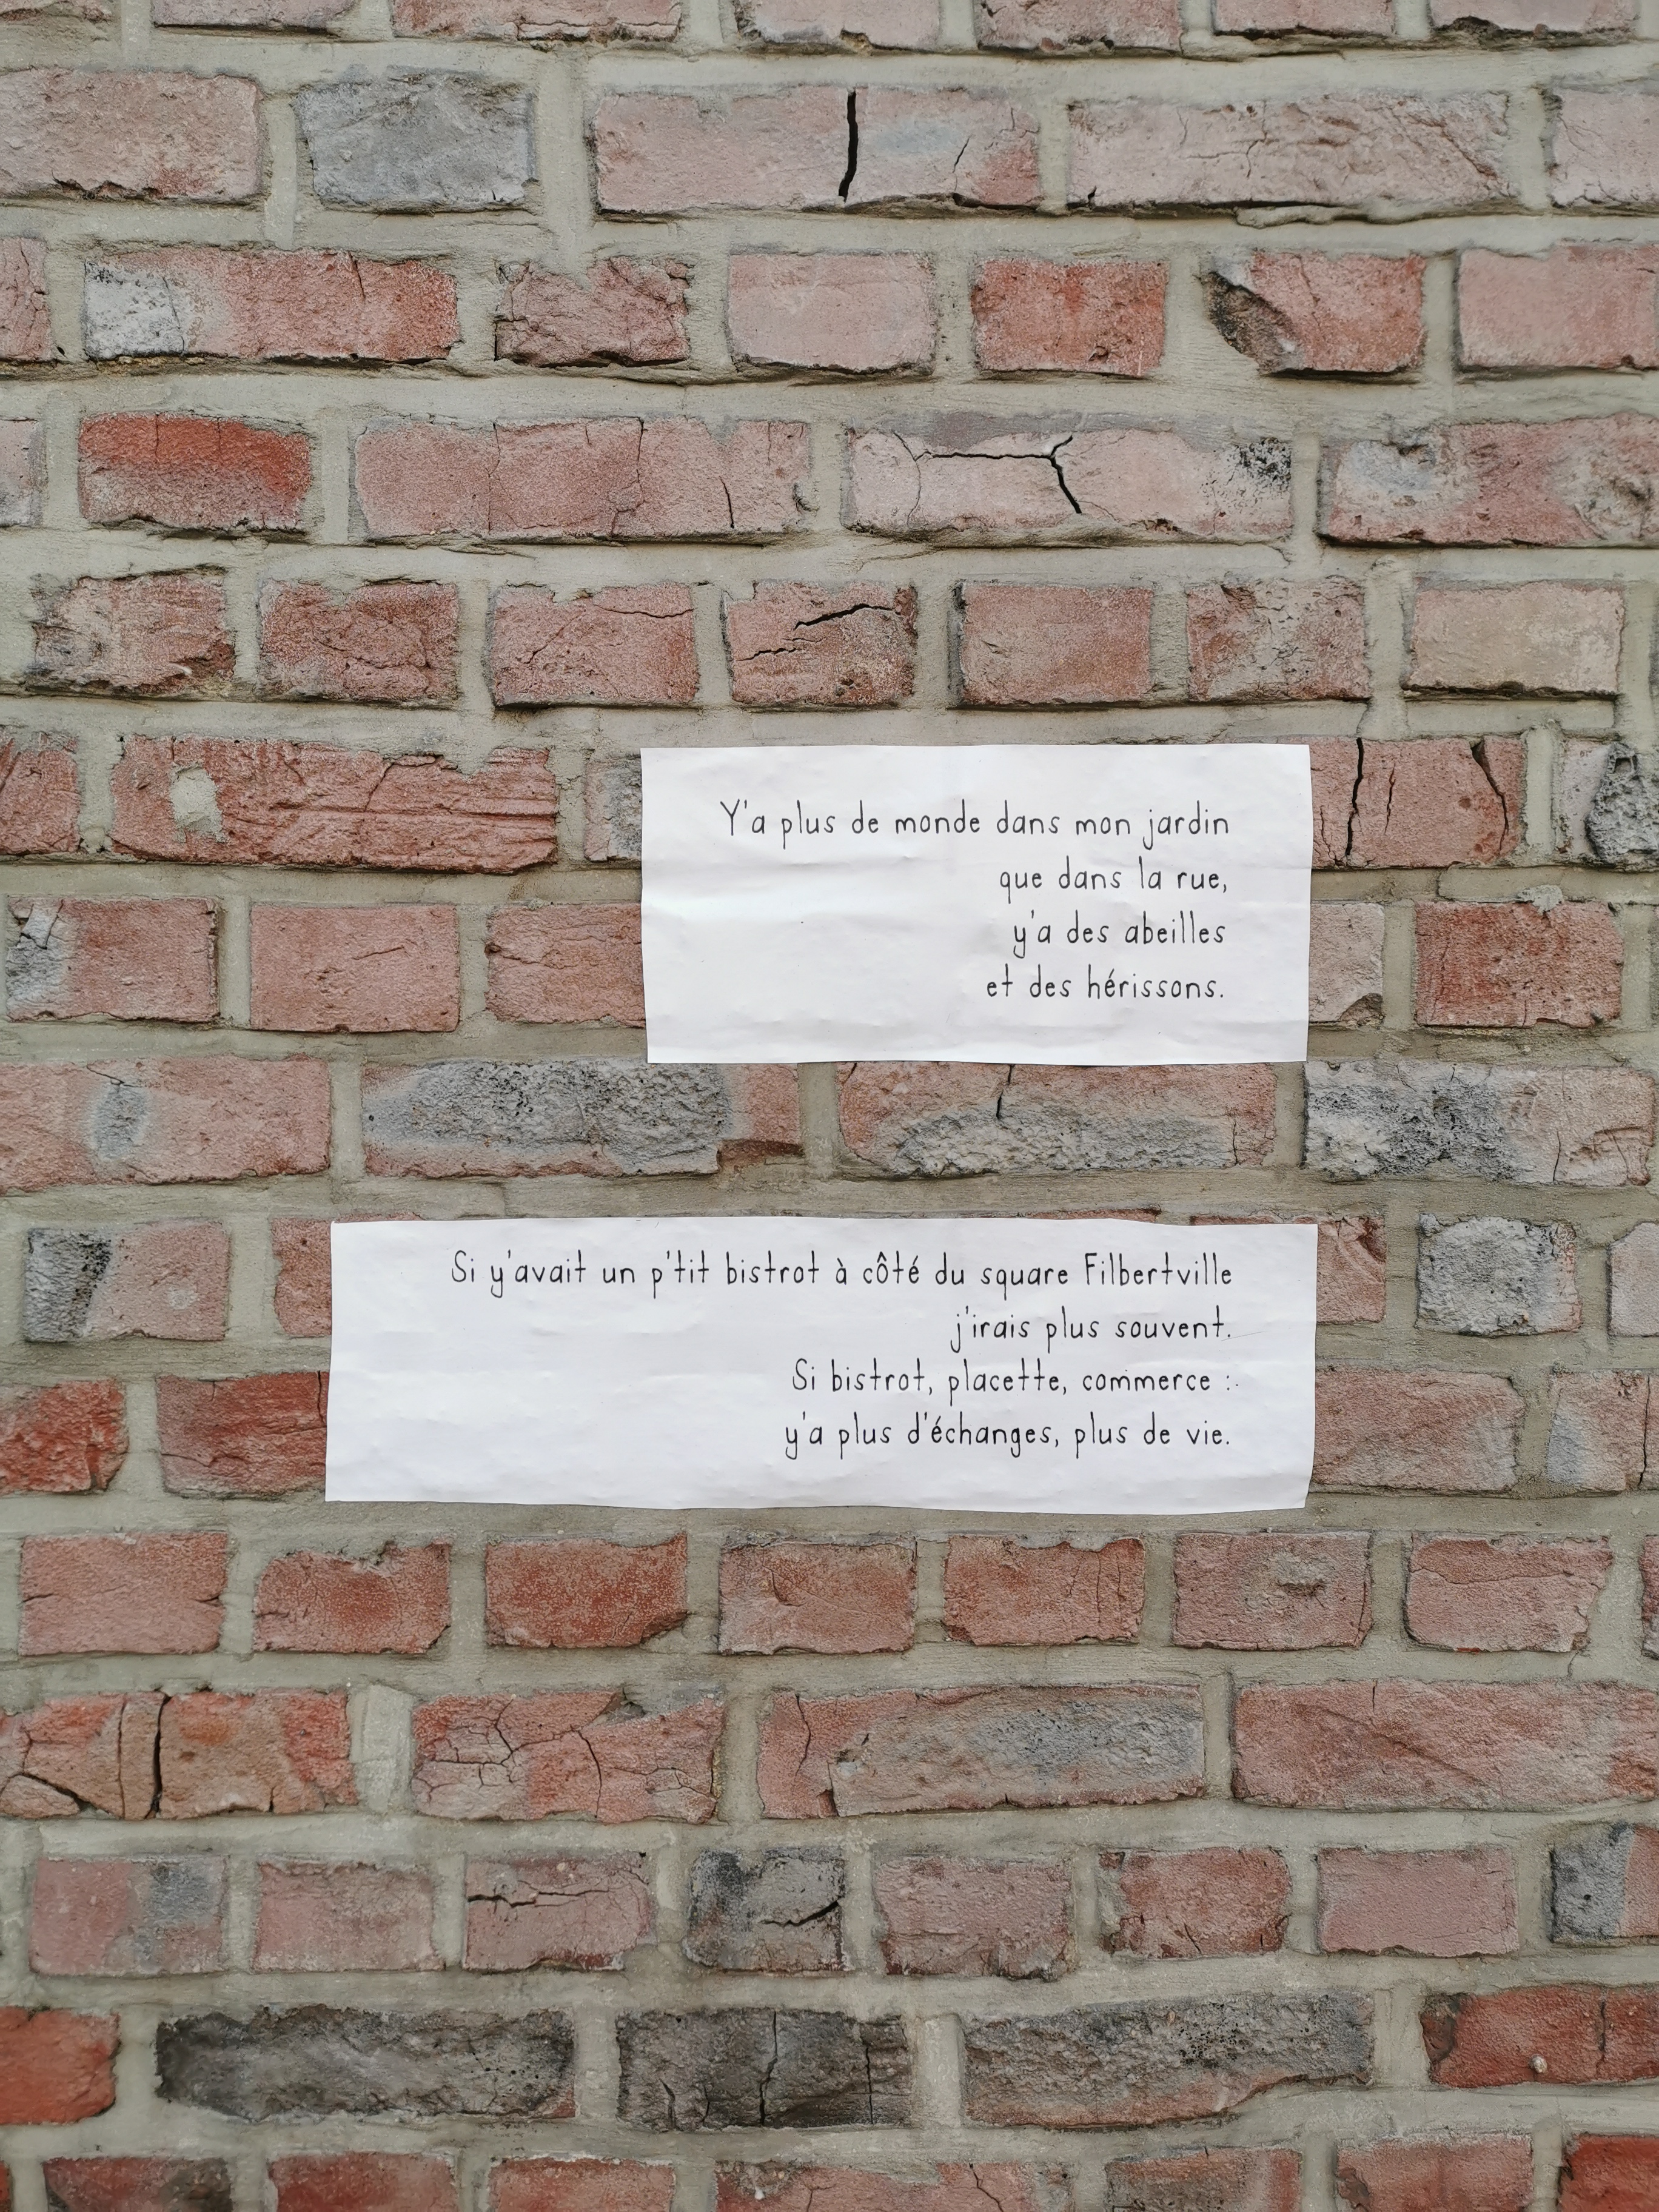 Y'a plus de monde dans mon jardin
que dans la rue,
y'a des abeilles
et des hérissons.
Si y'avait un p'tit bistrot à côté du square Filbertville
j'irais plus souvent.
Si bistrot, placette, commerce :
y'a plus d'échanges, plus de vie.